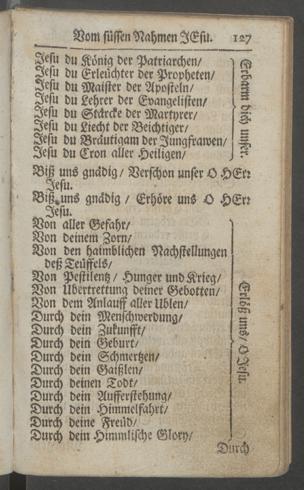 Vom süssen Nahmen JEsu. 127
Jesu du König der Patriarchen/
Jesu du Erleüchter der Propheten/
Jesu du Maister der Aposteln/
Jesu du Lehrer der Evangelisten/
Jesu du Stärcke der Martyrer/
Jesu du Liecht der Beichtiger/
Jesu du Bräutigam der Jungfrawen/
Jesu du Cron aller Heiligen/
Erbarm dich unser.
Biß uns gnädig/ Verschon unser O HEr:
Jesu.
Biß uns gnädig/ Erhöre uns O HEr:
Jesu.
Von aller Gefahr/
Von deinem Zorn/
Von den haimblichen Nachstellungen
deß Teüffels/
Von Pestilentz/ Hunger und Krieg/
Von Ubertrettung deiner Gebotten/
Von dem Anlauff aller Ublen/
Durch dein Menschwerdung/
Durch dein Zukunfft/
Durch dein Geburt/
Durch dein Schmertzen/
Durch dein Gaißlen/
Durch deinen Todt/
Durch dein Aufferstehung/
Durch dein Himmelfahrt/
Durch deine Freüd/
Durch dein Himmlische Glory/
Erlöß uns/ O Jesu.
Durch